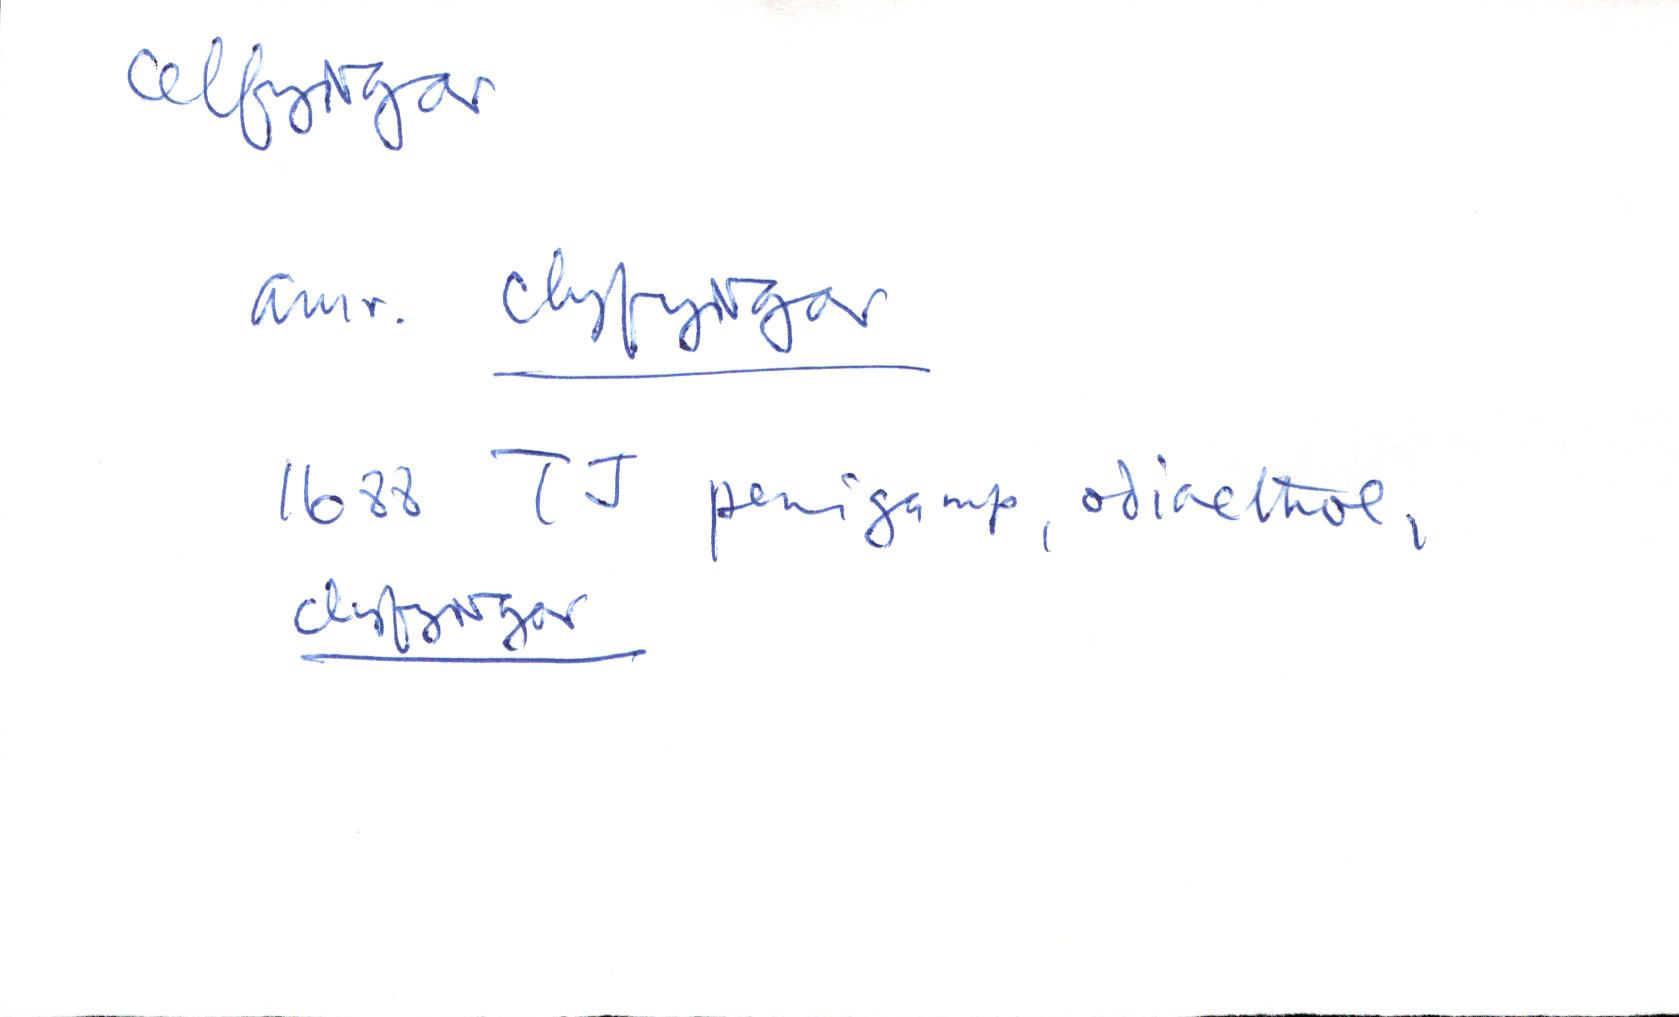 celfyngar
amr. clyfyngar
1688 TJ penigamp, odiaethol,
clyfyngar